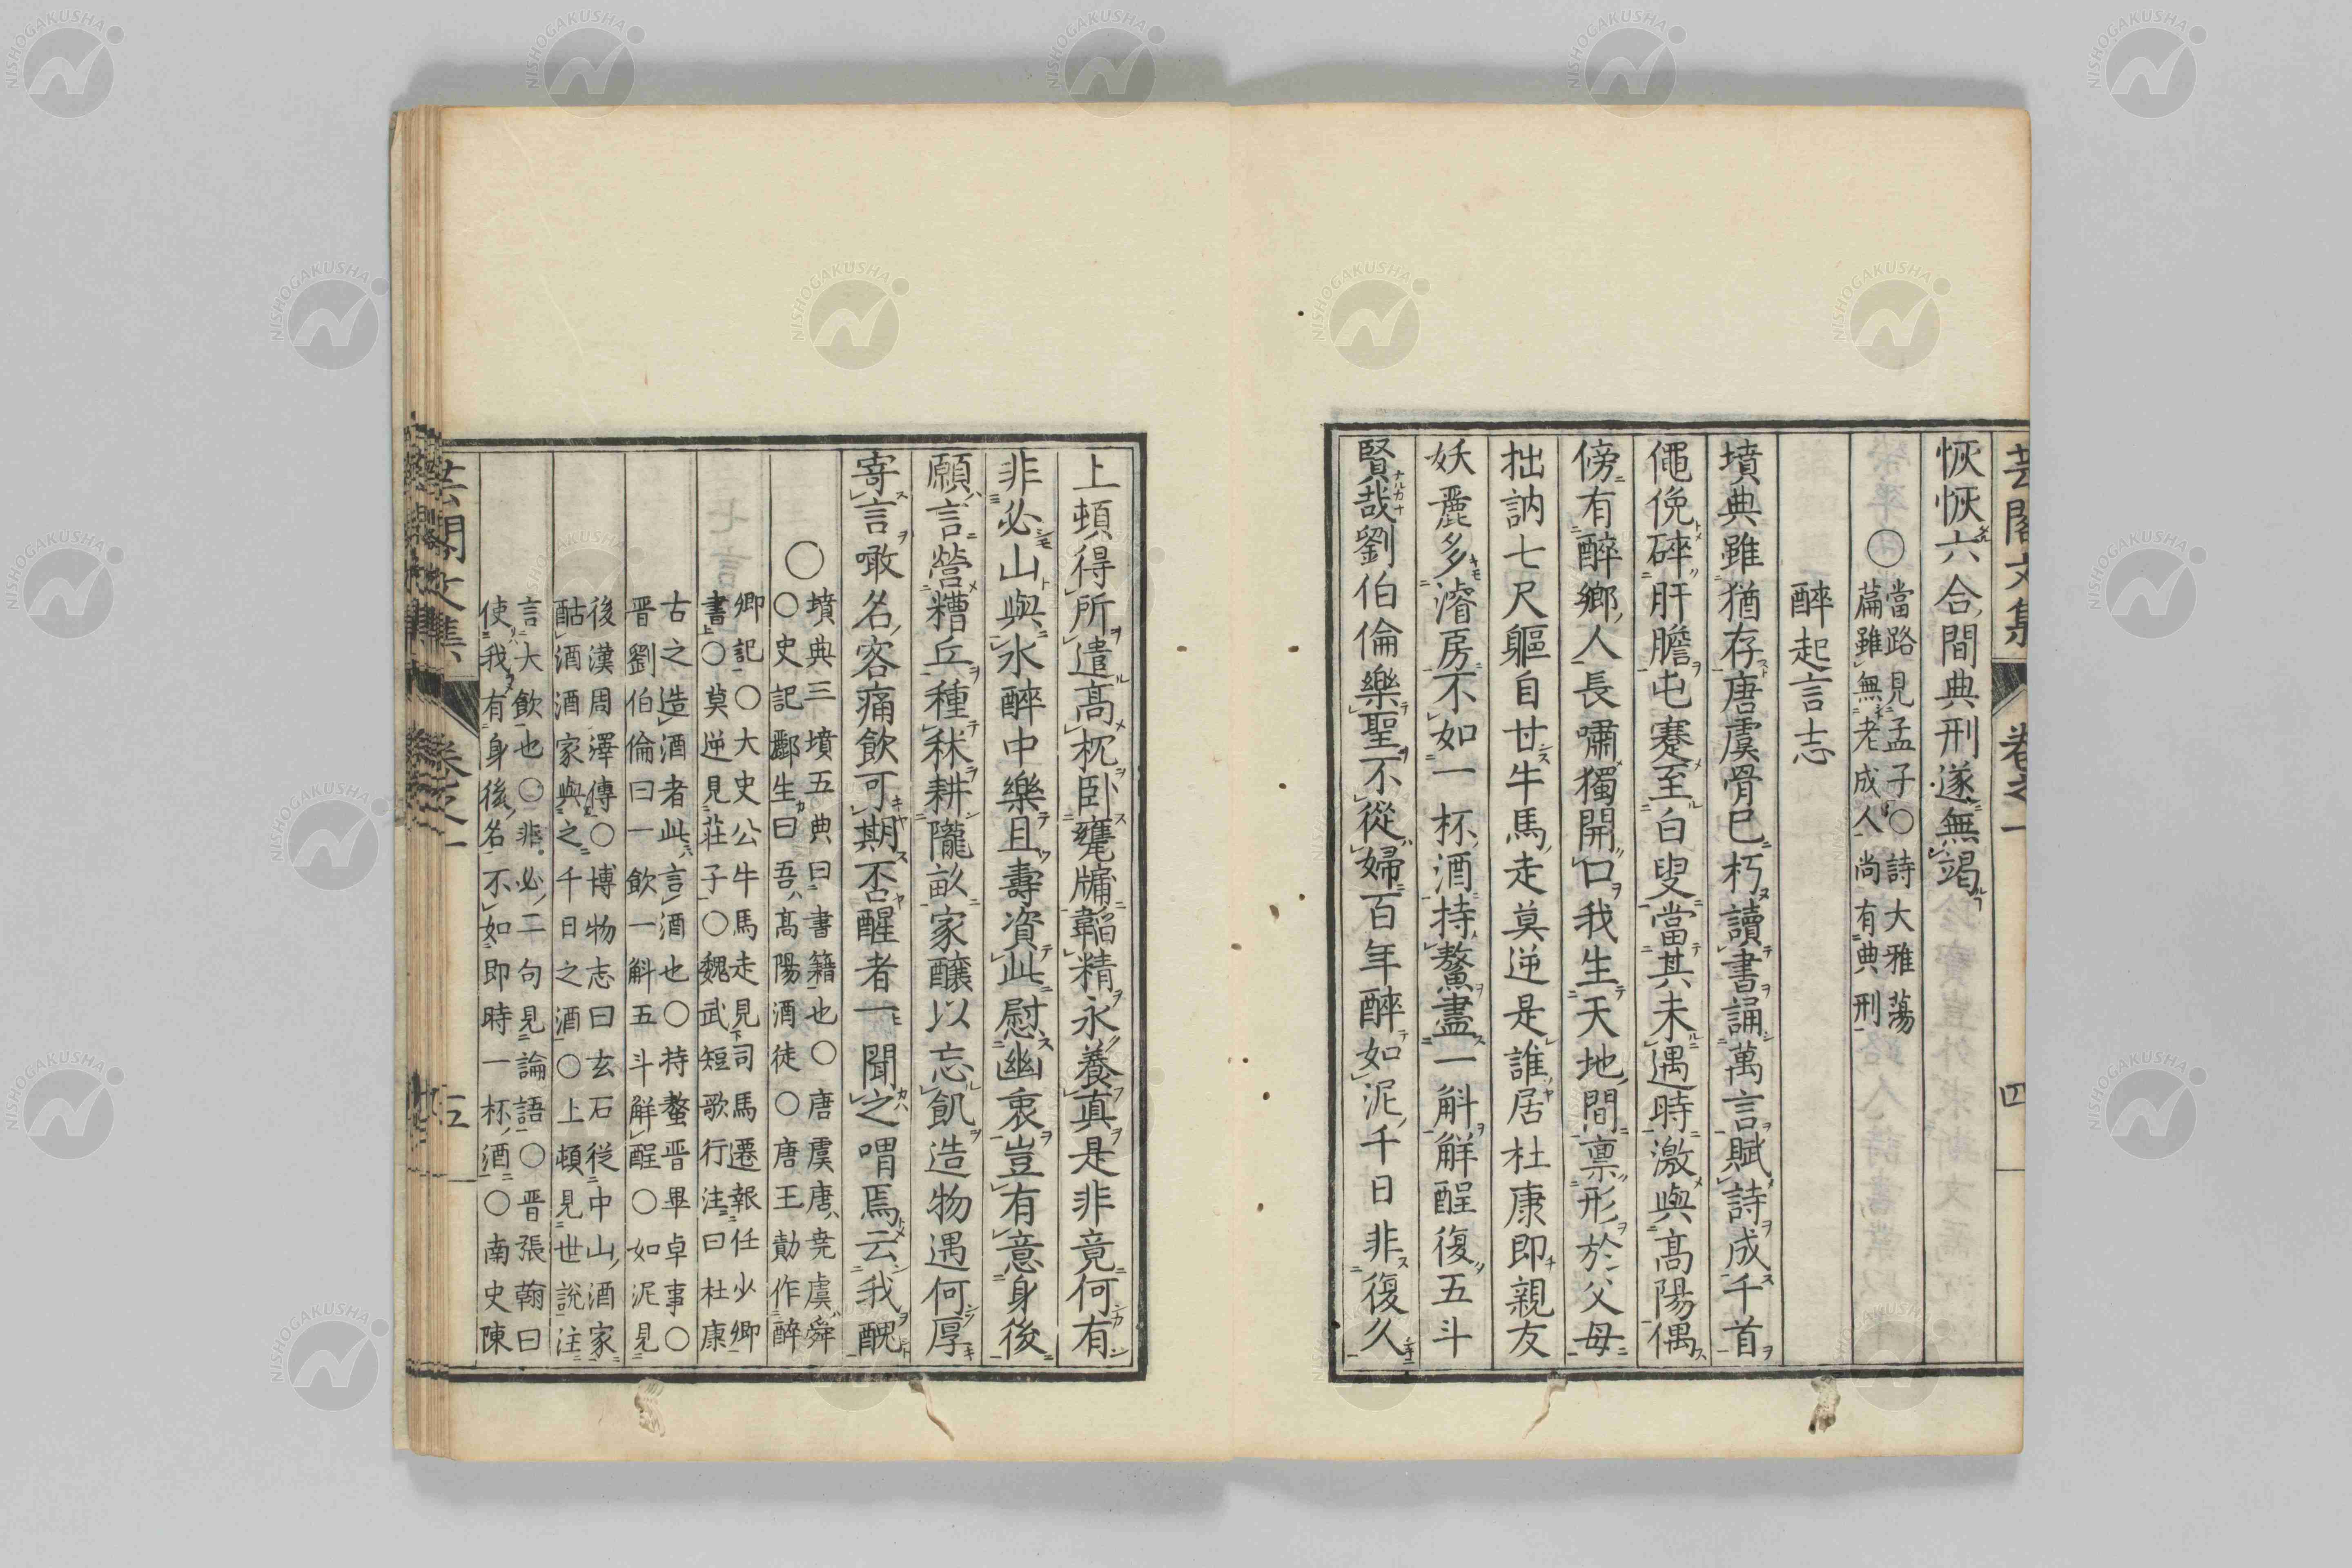 芸閣文集 卷之一 四
恢恢六合間典刑遂無竭
○當路見孟子○詩大雅蕩
篇雖無老成人尚有典刑
醉起言志
墳典雖猶存唐虞骨已朽讀書誦萬言賦詩成千首
僶俛碎肝膽屯蹇至白叟當其未遇時激與高陽偶
傍有醉鄉人長嘯獨開口我生天地間禀形於父母
拙訥七尺軀自甘牛馬走莫逆是誰居杜康即親友
妖麗多濳房不如一杯酒持鰲盡一斛解酲復五斗
賢哉劉伯倫樂聖不從婦百年醉如泥千日非復久
上頓得所遣高枕臥甕牖韜精永養真是非竟何有
非必山與水醉中樂且壽資此慰幽衷豈有意身後
願言營糟丘種秫耕隴畝家釀以忘飢造物遇何厚
寄言噉名客痛飲可期否醒者一聞之喟焉云我醜
○墳典三墳五典曰書籍也○唐虞唐堯虞舜
○史記酈生曰吾高陽酒徒○唐王勣作醉
鄉記○大史公牛馬走見司馬遷報任少卿
書○莫逆見莊子○魏武短歌行注曰杜康
古之造酒者此言酒也○持螯晋畢卓事○
晋劉伯倫曰一飲一斛五斗解酲○如泥見
後漢周澤傳○博物志曰玄石從中山酒家
酤酒酒家與之千日之酒○上頓見世說注
言大飲也○非必二句見論語○晋張翰曰
使我有身後名不如即時一杯酒○南史陳
芸閣文集 卷之一 五
NISHOGAKUSHA
NISHOGAKUSHA
NISHOGAKUSHA
NISHOGAKUSHA
NISHOGAKUSHA
NISHOGAKUSHA
NISHOGAKUSHA
NISHOGAKUSHA
NISHOGAKUSHA